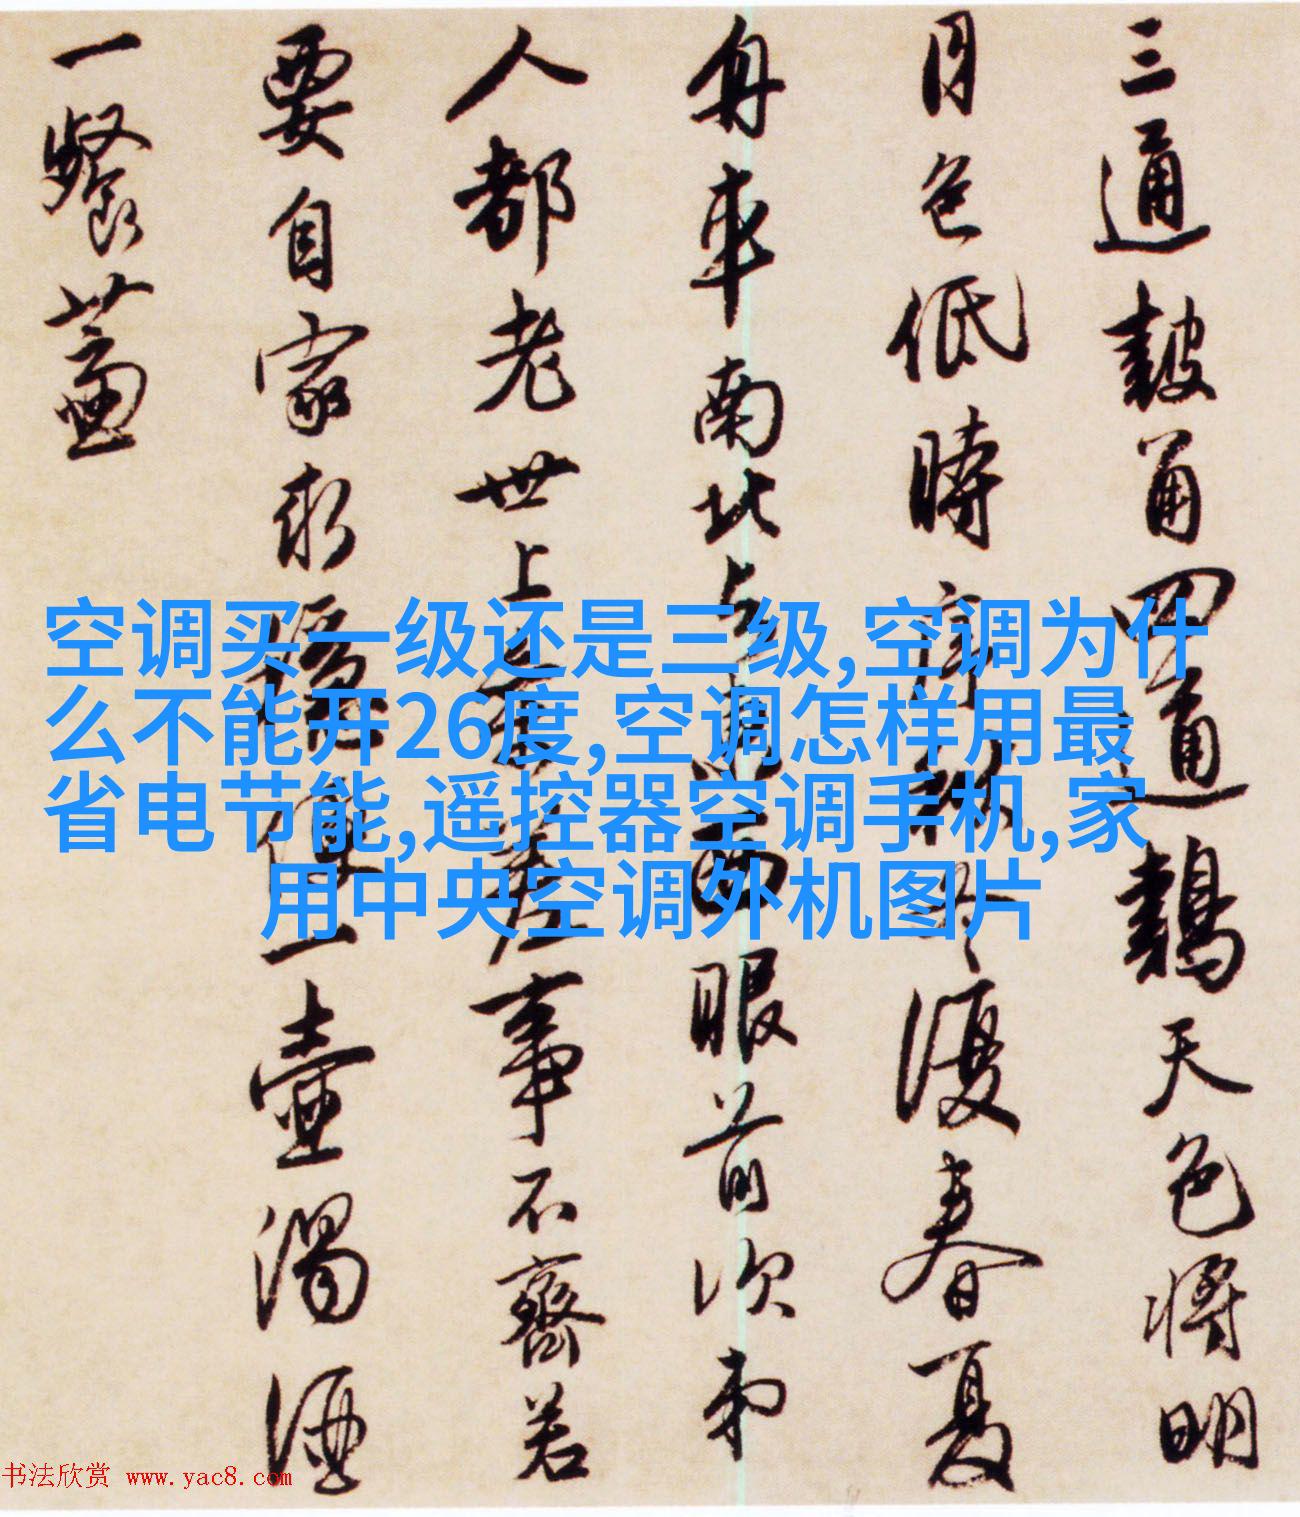 三通皷角四通鷄天色将明
月色低時序秋冬復春夏
舟車南北与東西眼前次第
人都老世上参差事不齊若
要自家求穩便一壺濁酒
一餐虀
空调买一级还是三级,空调为什
么不能开26度,空调怎样用最
省电节能,遥控器空调手机,家
用中央空调外机图片
书法欣赏 www.yac8.com